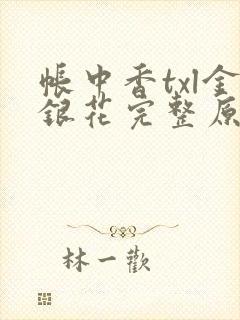 帳中香txl金
銀花完整原
林一歡